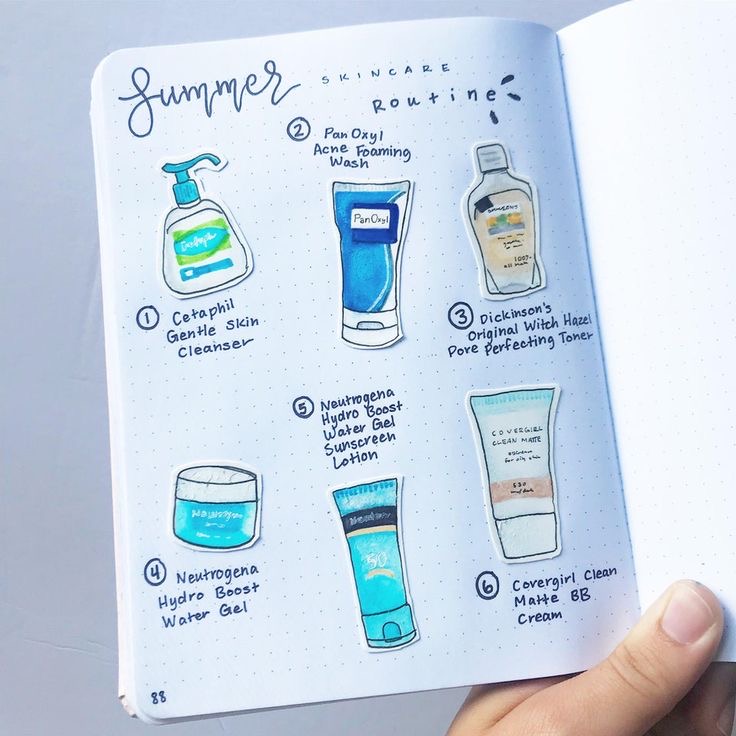 Summer SKINCARE
Routine
1 Cetaphil
Gentle Skin
Cleanser
Cetaphil
2 PanOxyl
Acne Foaming
Wash
PanOxyl
3 Dickinson's
Original Witch Hazel
Pore Perfecting Toner
100%
4 Neutrogena
Hydro Boost
Water Gel
5 Neutrogena
Hydro Boost
Water Gel
Sunscreen
Lotion
50
6 Covergirl Clean
Matte BB
Cream
COVERGIRL
CLEAN MATTE
for oily skin
530
88